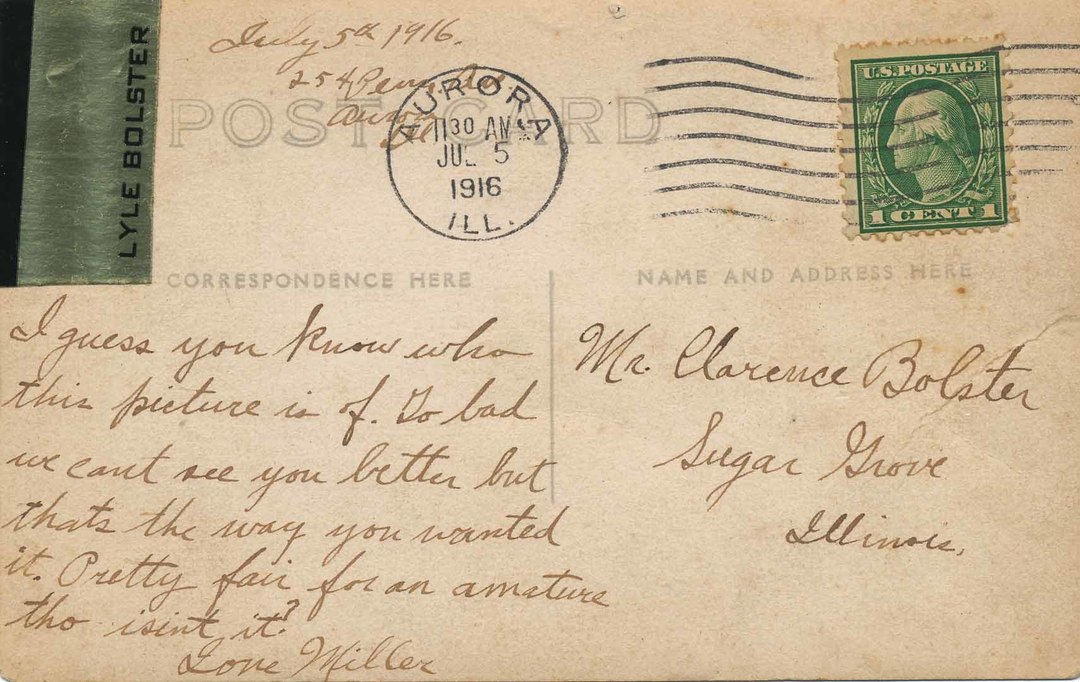 LYLE BOLSTER
July 5th 1916.
254 Penn.
POST CARD
AURORA
1130 AM
JUL 5
1916
ILL.
U.S. POSTAGE
1 CENT 1
CORRESPONDENCE HERE
NAME AND ADDRESS HERE
I guess you know who
this picture is of. To bad
we cant see you better but
thats the way you wanted
it. Pretty fair for an amature
tho isint it?
Miller
Mr. Clarence Bolster
Sugar Grove
Illinois.